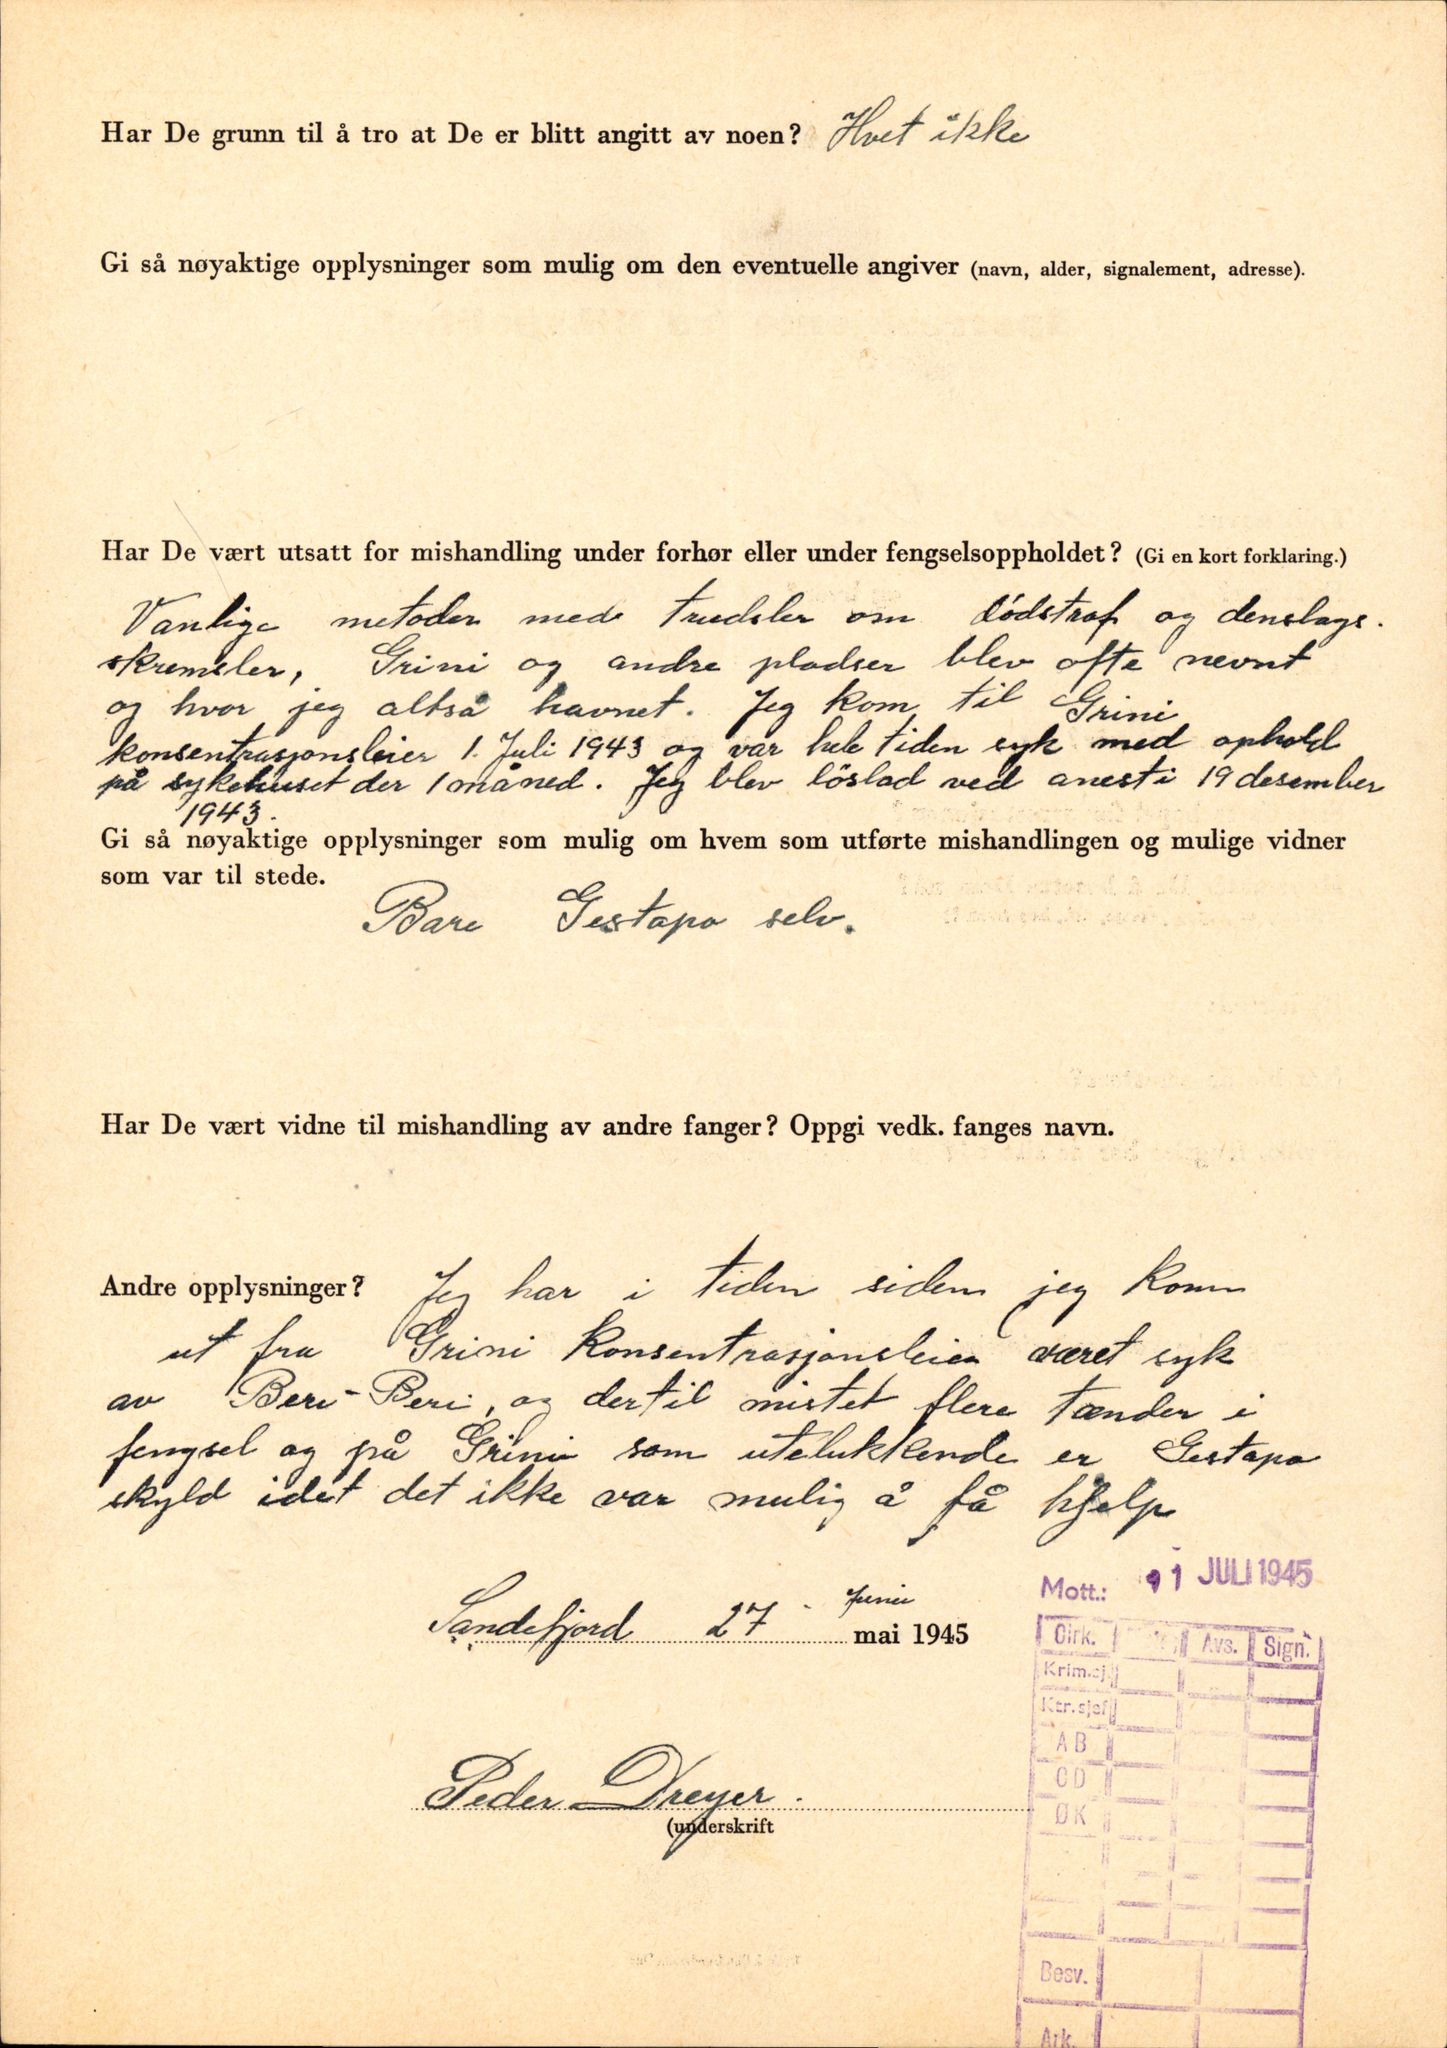 Har De grunn til å tro at De er blitt angitt av noen? Hvet ikke
Gi så nøyaktige opplysninger som mulig om den eventuelle angiver (navn, alder, signalement, adresse).
Har De vært utsatt for mishandling under forhør eller under fengselsoppholdet? (Gi en kort forklaring.)
Vanlige metoder med trudsler om dødstraf og denslags.
skremsler, Grini og andre pladser blev ofte nevnt
og hvor jeg altså havnet. Jeg kom til Grini
konsentrasjonsleier 1. Juli 1943 og var hele tiden syk med ophold
på sykehuset der 1 måned. Jeg blev löslad ved anesti 19 desember
1943.
Gi så nøyaktige opplysninger som mulig om hvem som utførte mishandlingen og mulige vidner
som var til stede.
Bare Gestapo selv.
Har De vært vidne til mishandling av andre fanger? Oppgi vedk. fanges navn.
Andre opplysninger? Jeg har i tiden siden jeg kom
ut fra Grini Konsentrasjonsleier været syk
av Beri-Beri, og dertil mistet flere tænder i
fengsel og på Grini som utelukkende er Gestapo
skyld idet det ikke var mulig å få hjelp
Sandefjord 27 - Juni
mai 1945
Mott.: 11 JULI 1945
Dirk. Avs. Sign.
Krim.sj.
Ktr.sjef
AB
CD
ØK
Besv.
Ark.
Peder Dreyer.
(underskrift